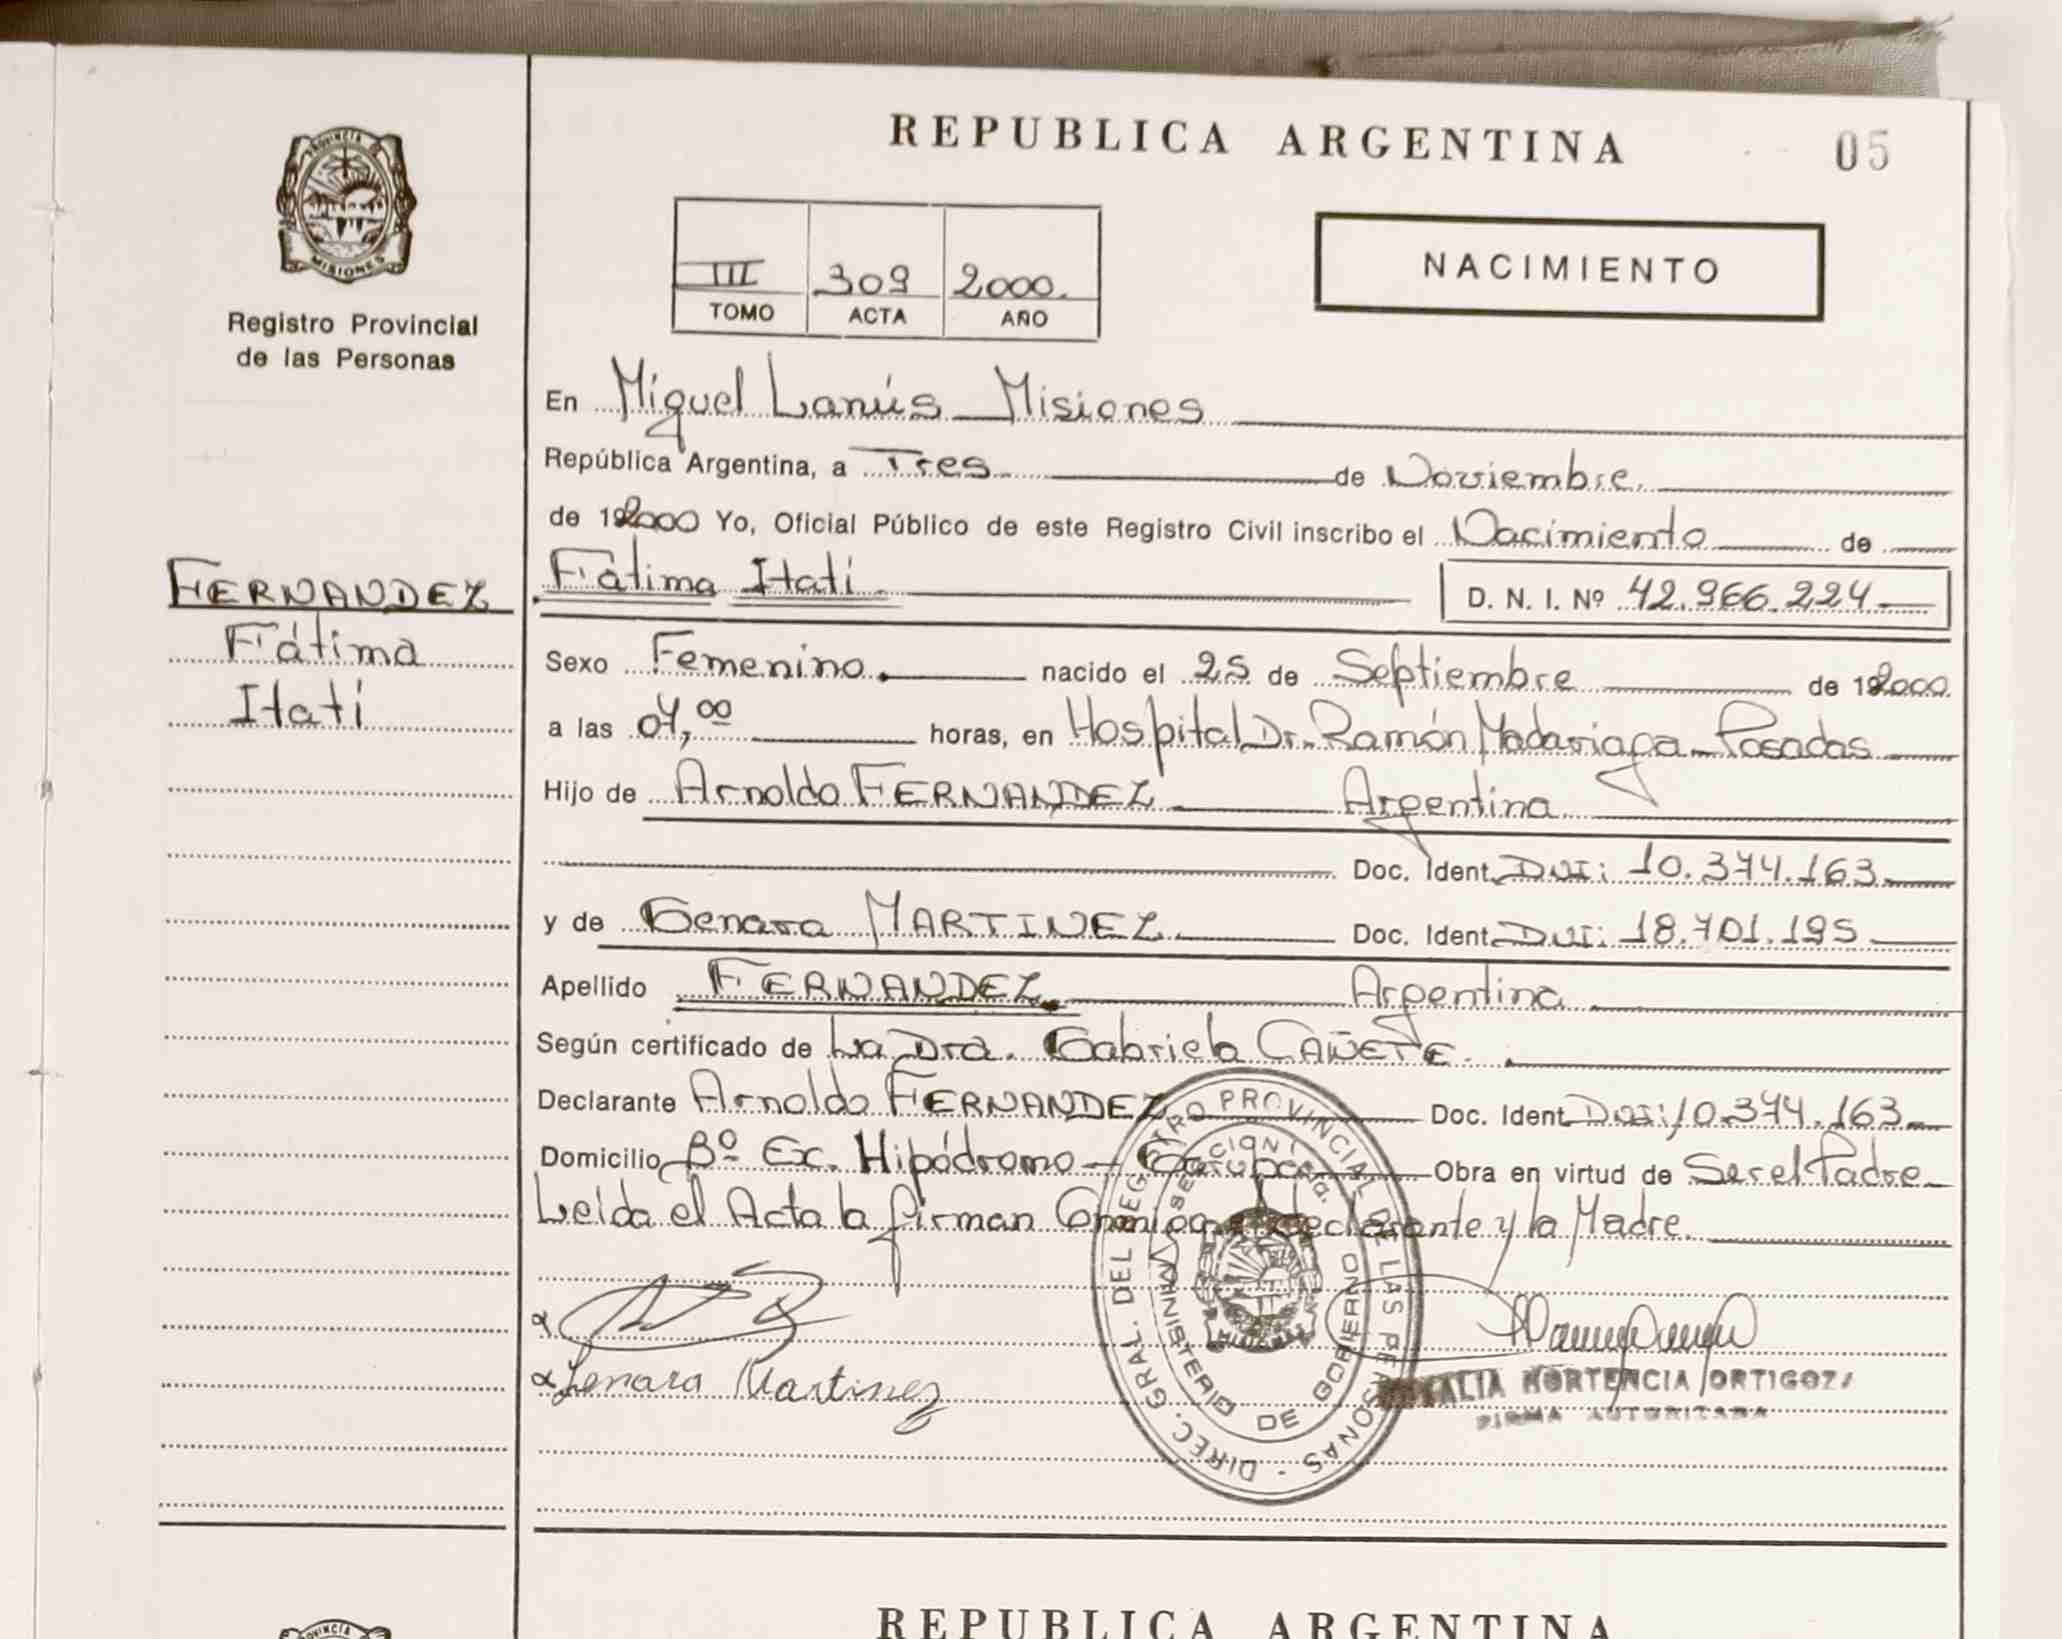 REPUBLICA ARGENTINA
05
PROVINCIA D
MISIONES
Registro Provincial
de las Personas
III 309 2000.
TOMO ACTA AÑO
NACIMIENTO
En Miguel Lanús Misiones
República Argentina, a Tres de Noviembre.
de 192000 Yo, Oficial Público de este Registro Civil inscribo el Nacimiento de
FERNANDEZ
Fátima
Itatí
Fátima Itatí. D. N. I. Nº 42.966.224
Sexo Femenino. nacido el 25 de Septiembre de 192000.
a las 07,00 horas, en Hospital Dr. Ramón Madariaga Posadas
Hijo de Arnoldo FERNANDEZ Argentina
Doc. Ident. DNI: 10.374.163
y de Genara MARTINEZ Doc. Ident. DNI: 18.701.195
Apellido FERNANDEZ Argentina
Según certificado de La Dra. Gabriela CAÑETE.
Declarante Arnoldo FERNANDEZ Doc. Ident. DNI: 10.374.163
Domicilio Bº Ex. Hipódromo - Garupá Obra en virtud de Ser el Padre
Leída el Acta la firman Conmigo declarante y la Madre.
Genara Martinez
DIREC. GRAL. DEL REGISTRO PROVINCIAL DE LAS PERSONAS
MINISTERIO DE GOBIERNO
MISIONES
HORTENCIA ORTIGOZA
FIRMA AUTORIZADA
REPUBLICA ARGENTINA
PROVINCIA